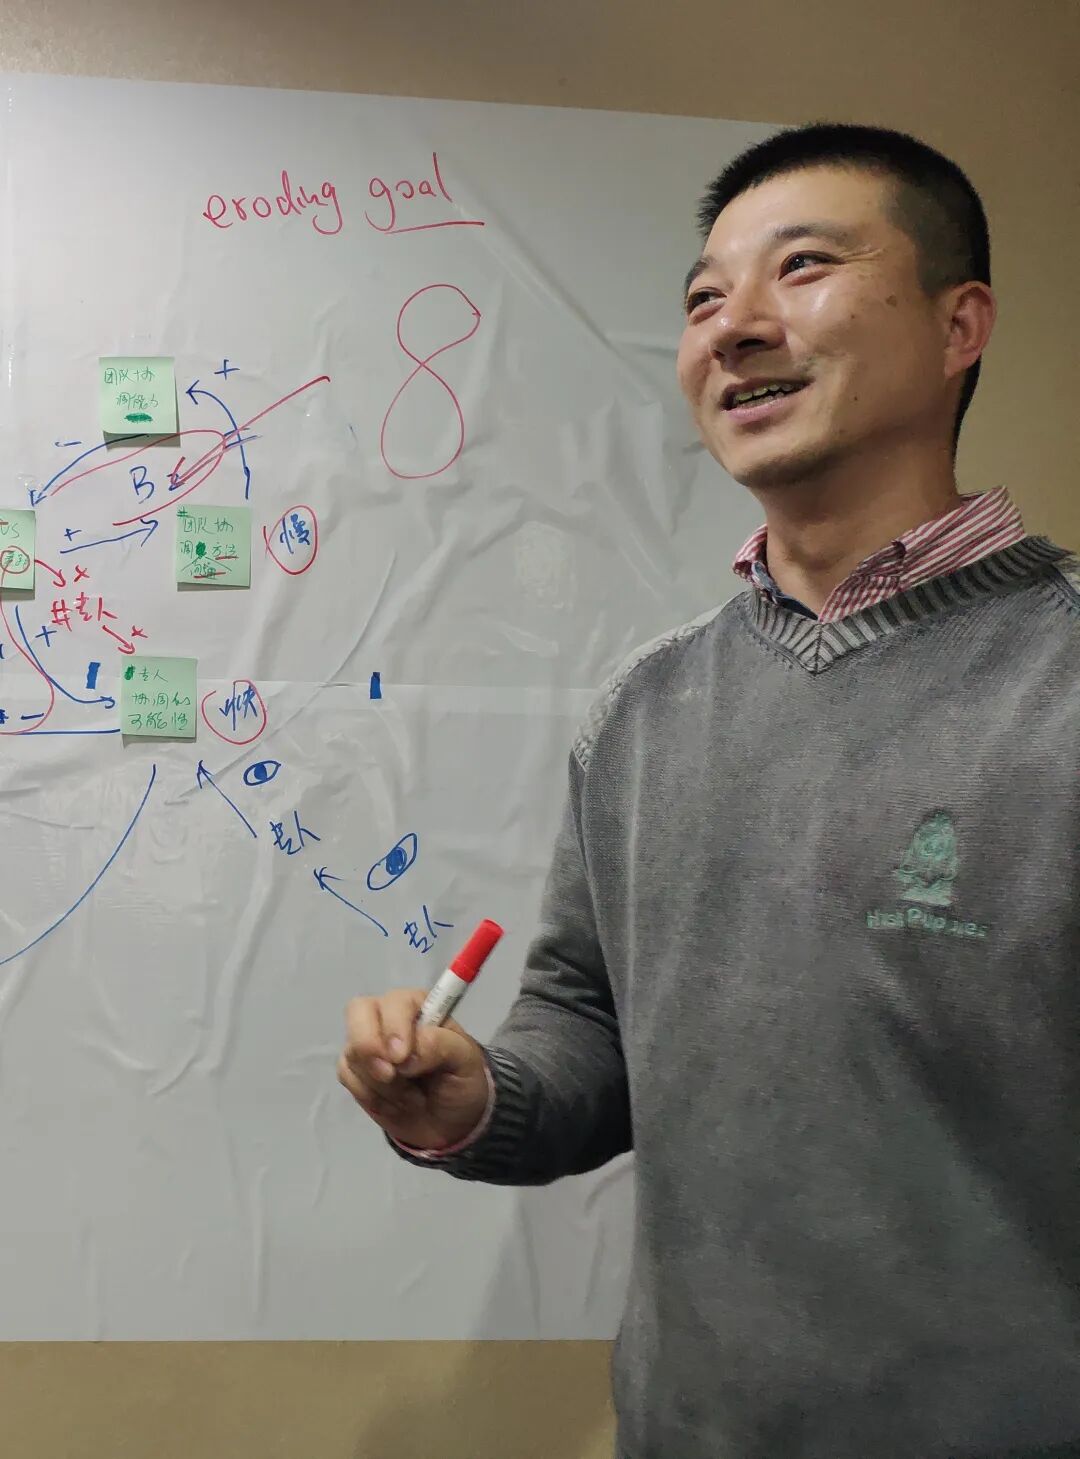 eroding goal
8
+
团队协
调能力
-
B
+
团队协
调 方法
慢
+
#专人
+
专人
协调的
可能性
快
-
专人
专人
Hush Puppies